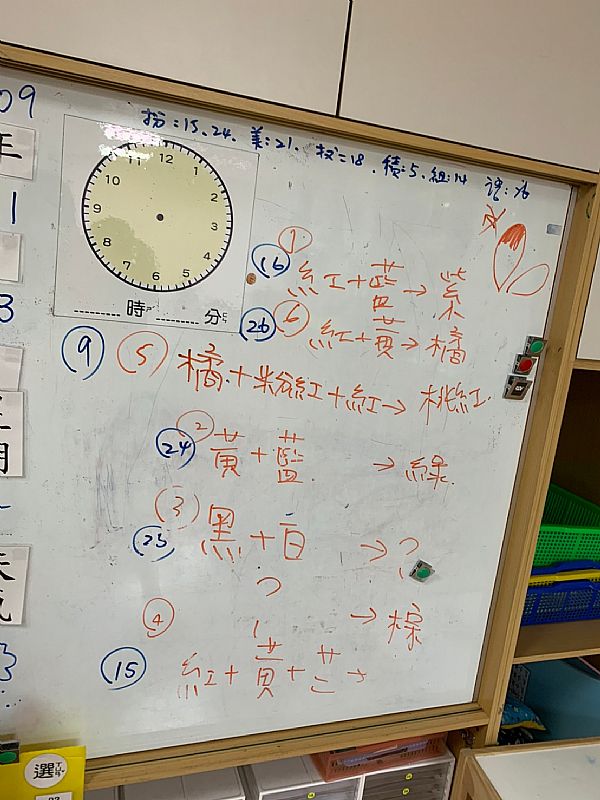 09
扮:15、24. 美:21. 扮:18. 積:5. 組:14 語:26
年
12 1 2 3 4 5 6 7 8 9 10 11
時 分
1
3
(16) ① 紅+藍→紫
(26) ⑥ 紅+黃→橘
(9) (5) 橘+粉紅+紅→桃紅
(24) ② 黃+藍 →綠
(23) (3) 黑+白 →?
④ ? →棕
(15) 紅+黃+芒→
選